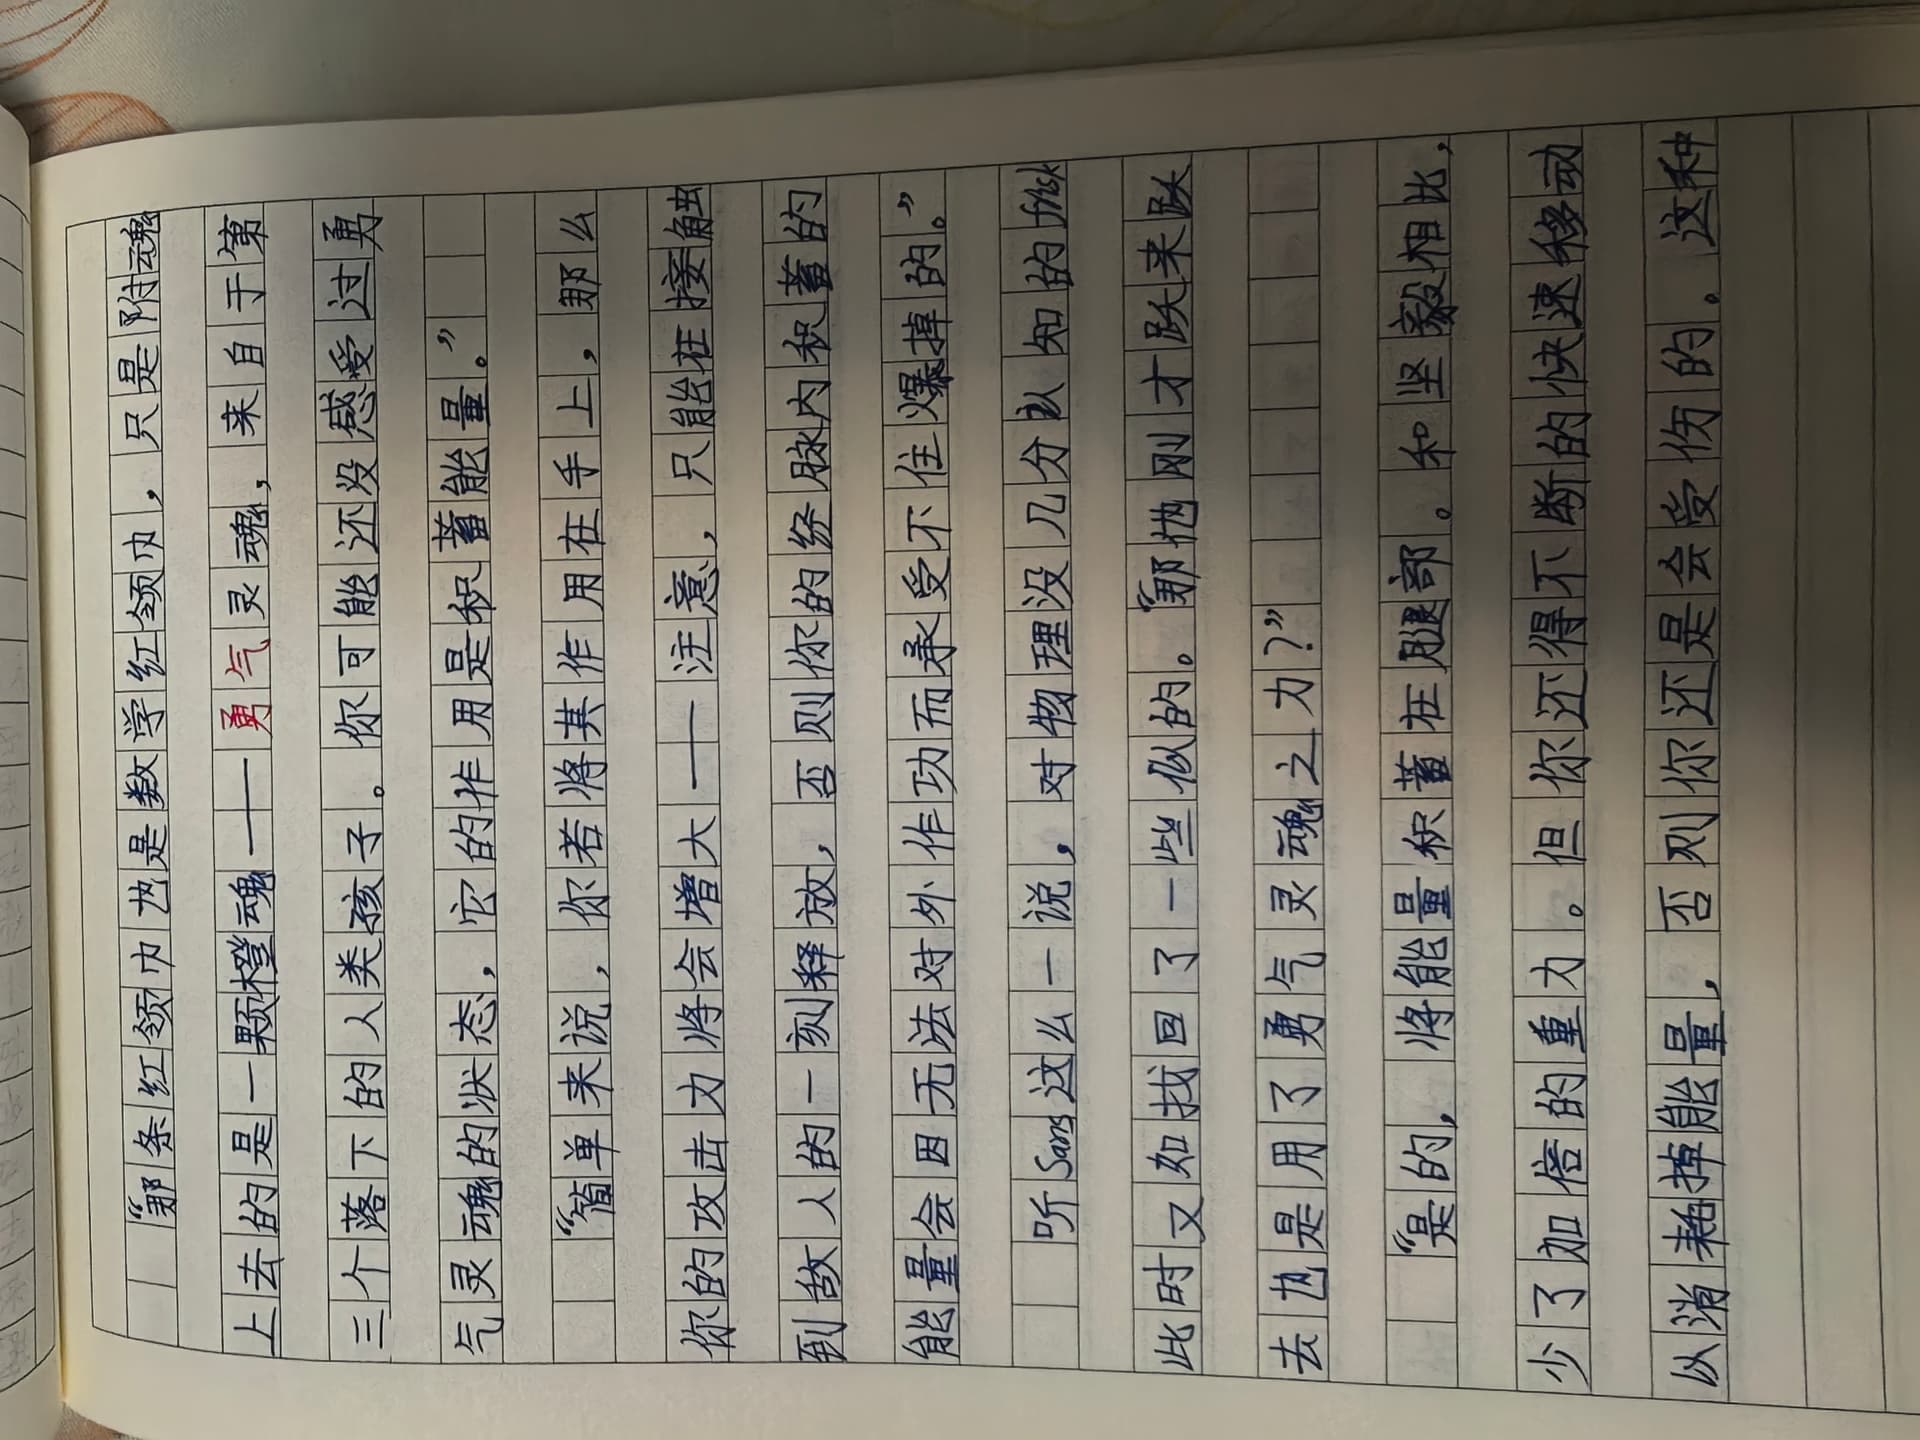 “那条红领巾也是数学红领巾，只是附魂
上去的是一颗橙魂——勇气灵魂，来自于第
三个落下的人类孩子。你可能还没感受过勇
气灵魂的状态，它的作用是积蓄能量。”
“简单来说，你若将其作用在手上，那么
你的攻击力将会增大——注意，只能在接触
到敌人的一刻释放，否则你的经脉内积蓄的
能量会因无法对外作功而承受不住爆掉的。”
听Sans这么一说，对物理没几分认知的frisk
此时又如找回了一些似的。“那他刚才跃来跃
去也是用了勇气灵魂之力？”
“是的，将能量积蓄在腿部。和坚毅相比，
少了加倍的重力。但你还得不断的快速移动
以消耗掉能量，否则你还是会受伤的。这种